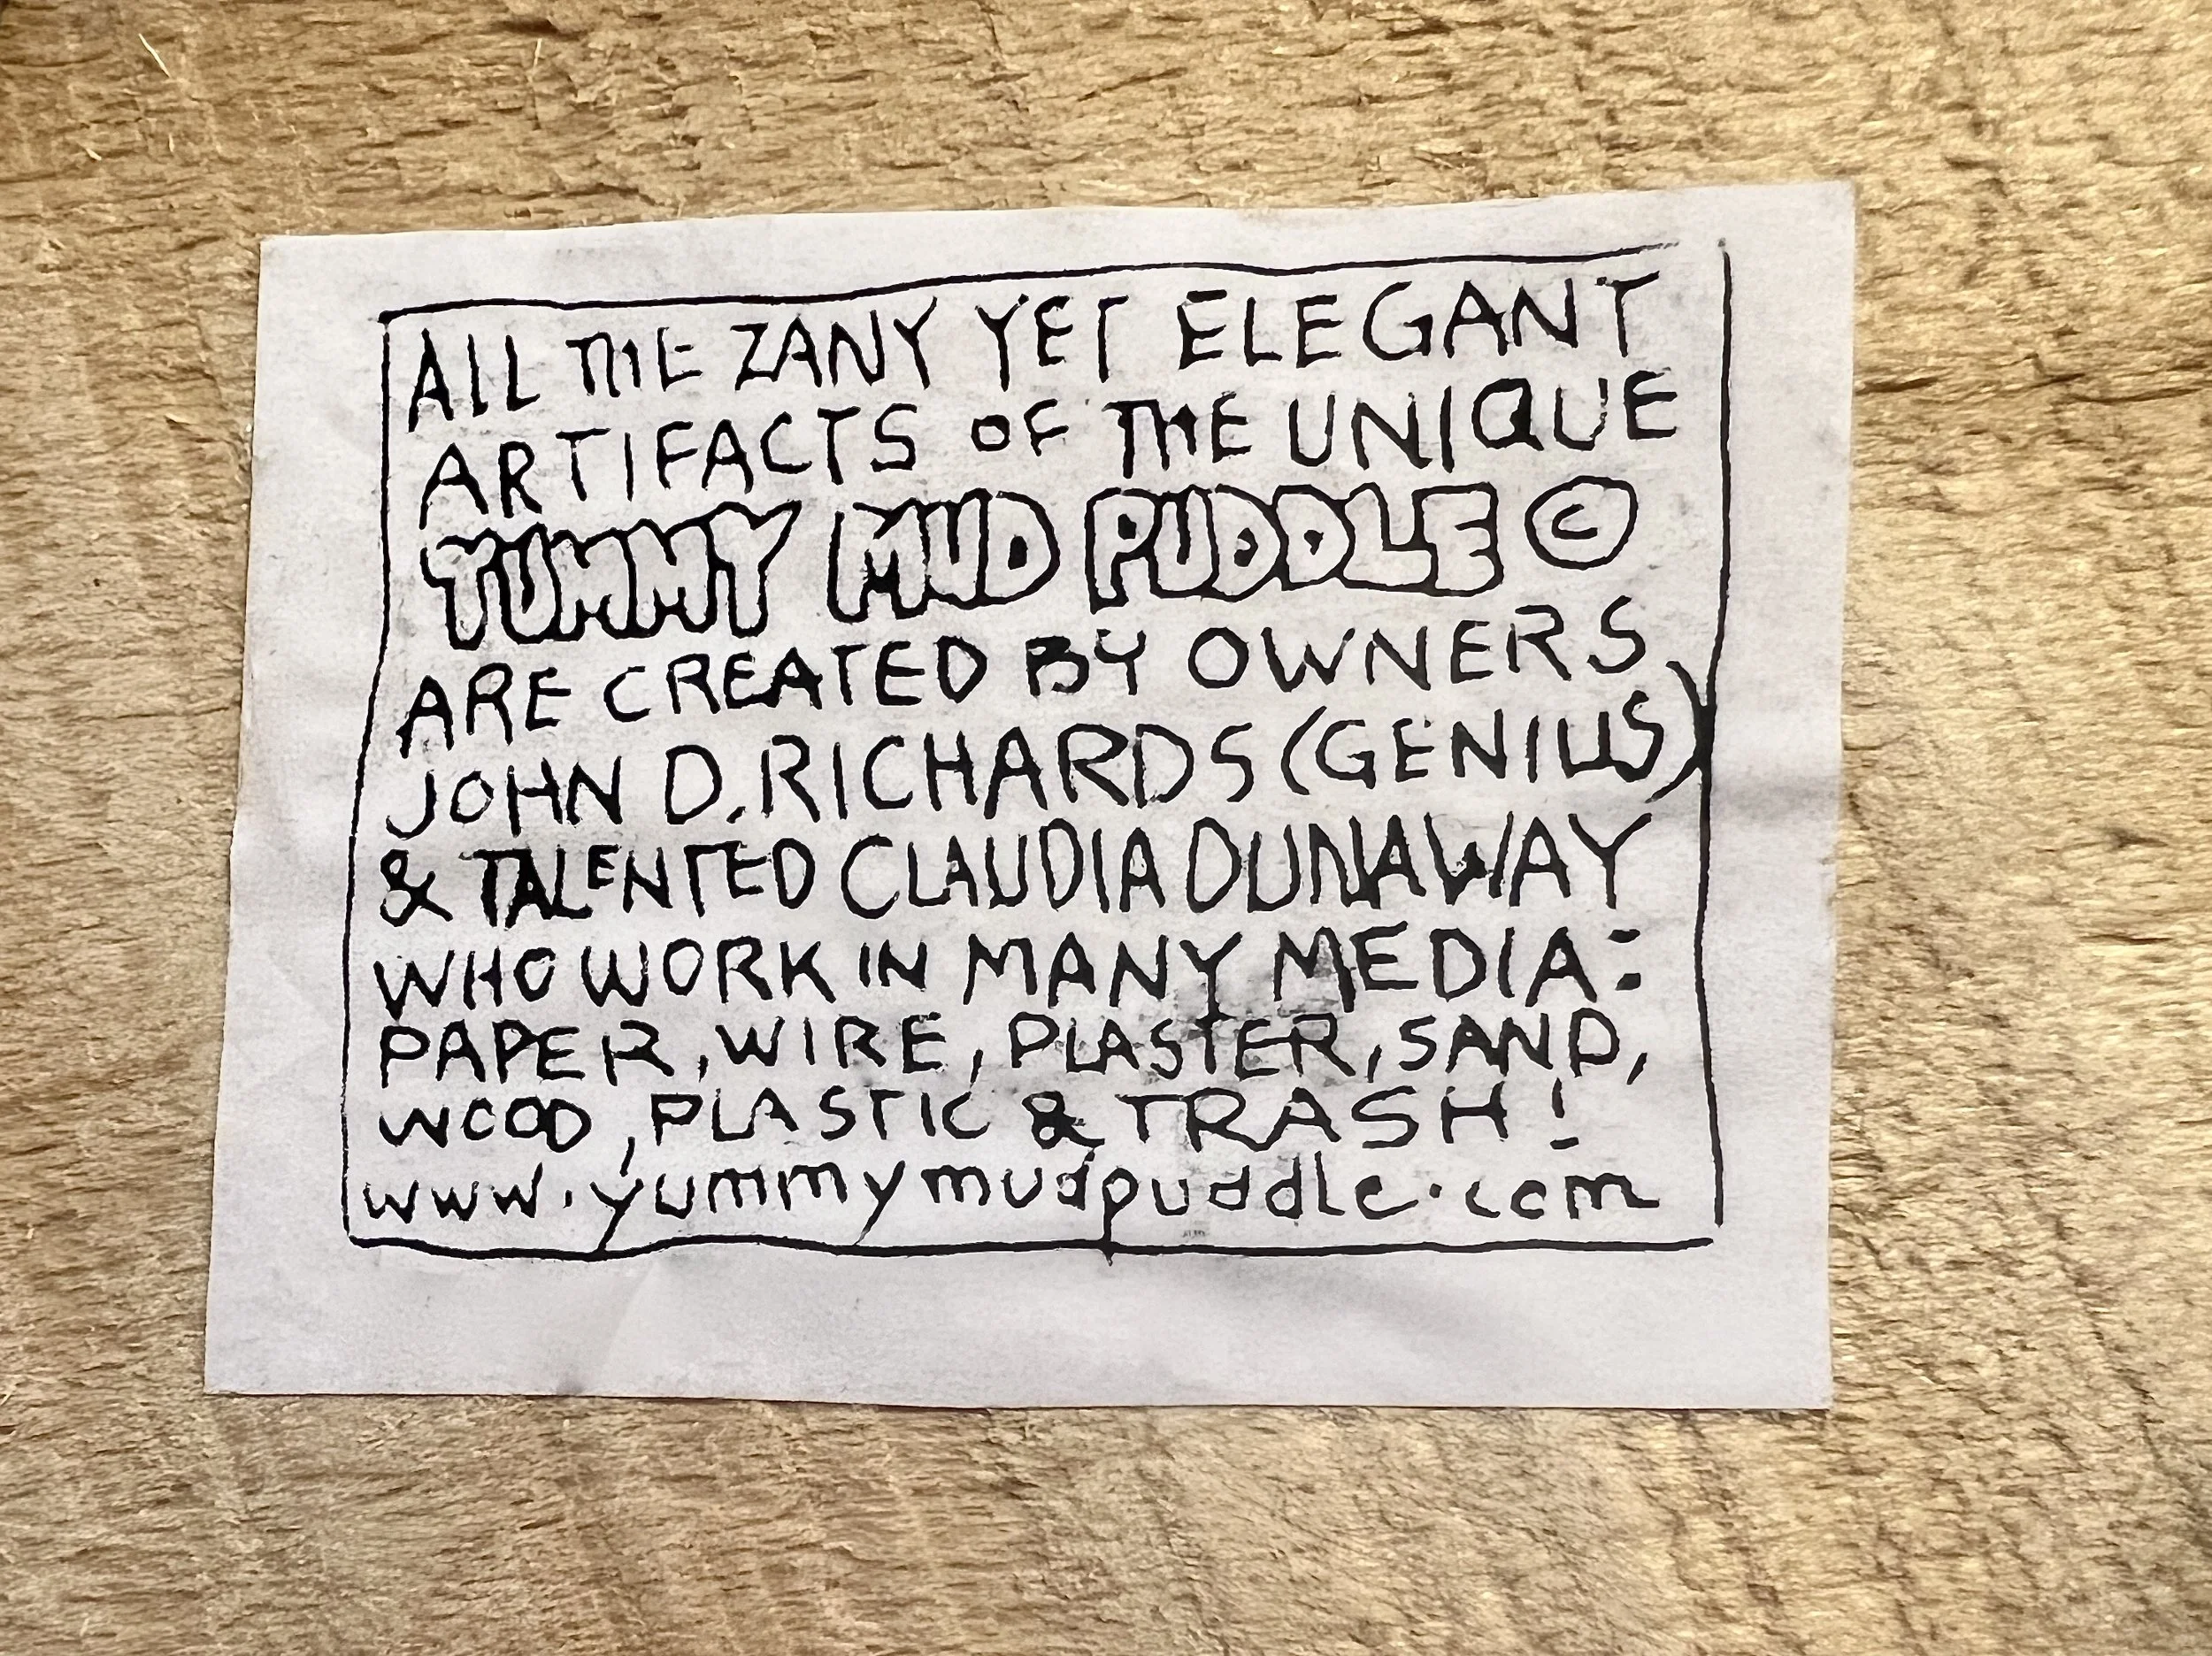 ALL THE ZANY YET ELEGANT
ARTIFACTS OF THE UNIQUE
YUMMY MUD PUDDLE ©
ARE CREATED BY OWNERS
JOHN D. RICHARDS (GENIUS)
& TALENTED CLAUDIA DUNAWAY
WHO WORK IN MANY MEDIA:
PAPER, WIRE, PLASTER, SAND,
WOOD, PLASTIC & TRASH!
www.yummymudpuddle.com